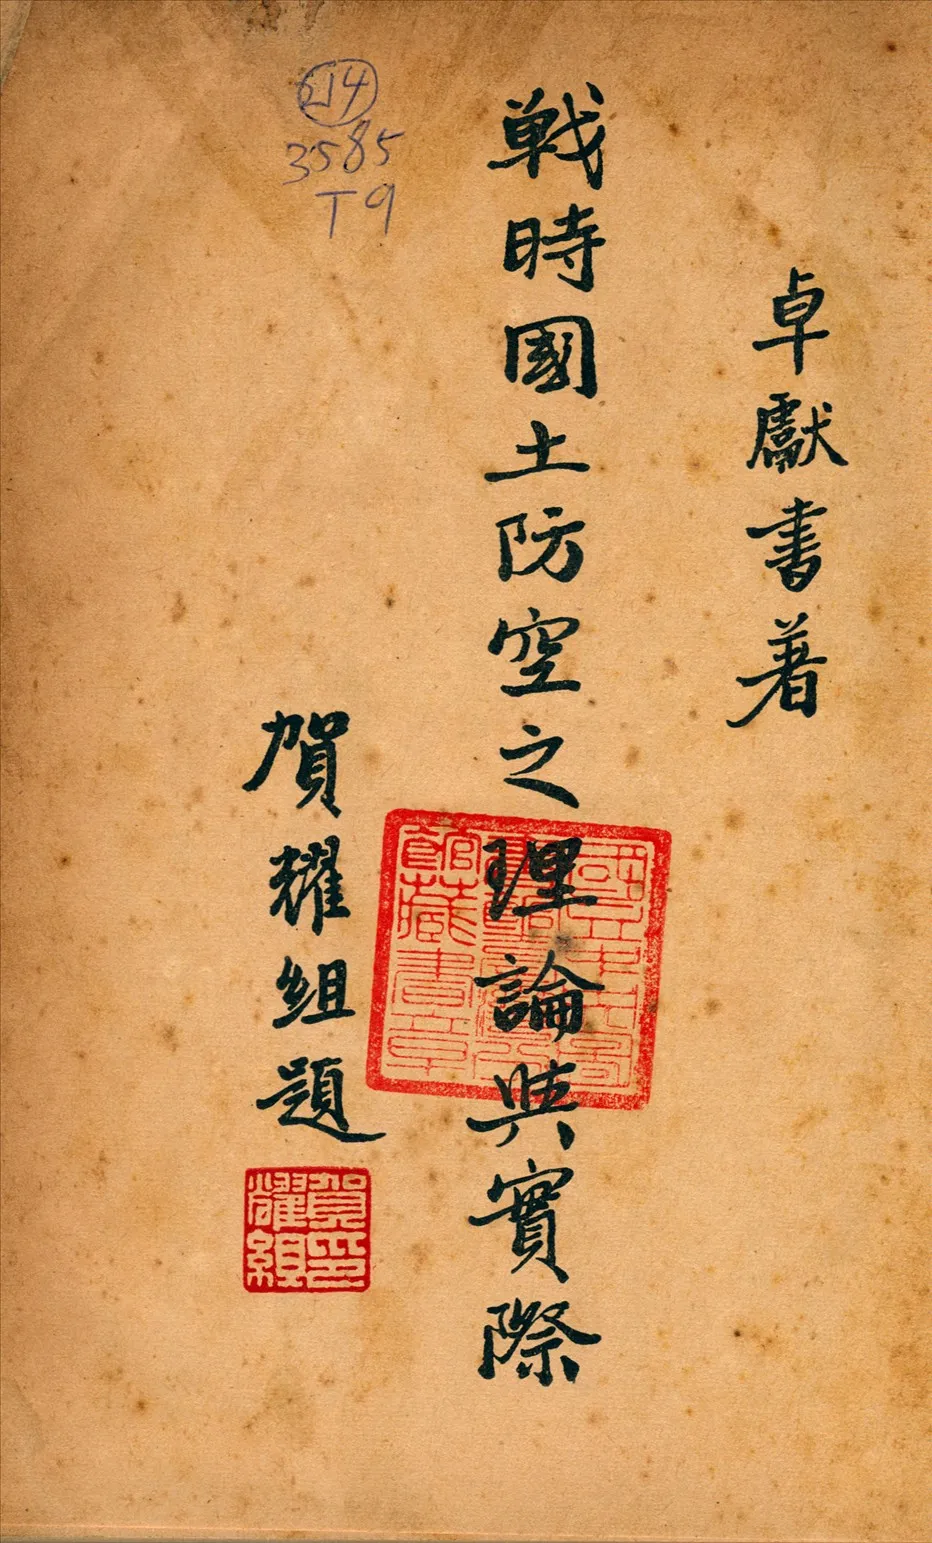 卓獻書著
戰時國土防空之理論與實際
賀耀組題
賀印
耀組
館藏書章
3585
T9